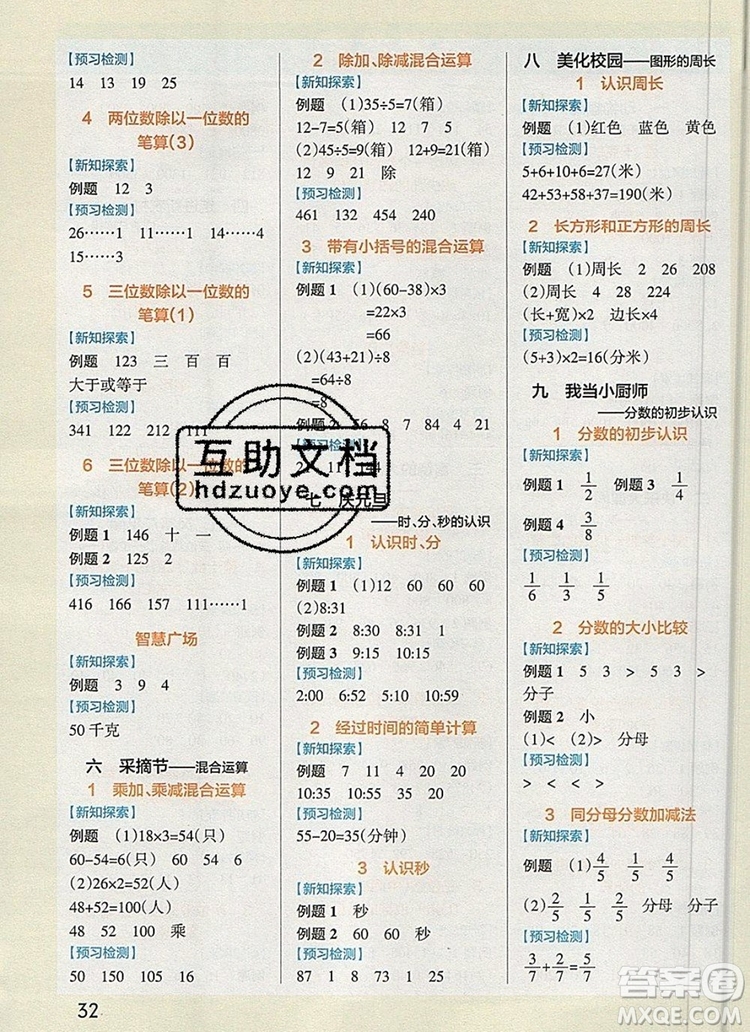 【预习检测】
14 13 19 25
4 两位数除以一位数的
笔算(3)
【新知探索】
例题 12 3
【预习检测】
26……1 11……1 14……4
15……3
5 三位数除以一位数的
笔算(1)
【新知探索】
例题 123 三 百 百
大于或等于
【预习检测】
341 122 212 111
6 三位数除以一位数的
笔算(2)
【新知探索】
例题 1 146 十 一
例题 2 125 2
【预习检测】
416 166 111……1
智慧广场
【新知探索】
例题 3 9 4
【预习检测】
50 千克
六 采摘节——混合运算
1 乘加、乘减混合运算
【新知探索】
例题 (1)18×3=54(只)
60-54=6(只) 54 6
(2)26×2=52(人)
48+52=100(人)
48 52 100 乘
【预习检测】
50 150 105 116
32
2 除加、除减混合运算
【新知探索】
例题 (1)35÷5=7(箱)
12-7=5(箱) 12 7 5
(2)45÷5=9(箱) 12+9=21(箱)
12 9 21 除
【预习检测】
461 132 454 240
3 带有小括号的混合运算
【新知探索】
例题 1 (1)(60-38)×3
=22×3
=66
(2)(43+21)÷8
=64÷8
=8
例题 2 56 8 7 84 4 21
【预习检测】
11 144
七 庆元旦
——时、分、秒的认识
1 认识时、分
【新知探索】
例题 1 (1)12 60 60 60
(2)8:31
例题 2 8:30 8:31
例题 3 9:15 9:15
【预习检测】
2:00 6:52 10:10
2 经过时间的简单计算
【新知探索】
例题 7 11 4 20 20
10:35 10:55 20
【预习检测】
55-20=35(分钟)
3 认识秒
【新知探索】
例题 1 秒
例题 2 60 秒
【预习检测】
87 1 8 21 25
八 美化校园——图形的周长
1 认识周长
【新知探索】
例题 (1)红色 蓝色 黄色
【预习检测】
5+6+10+6=27(米)
42+53+58+37=190(米)
2 长方形和正方形的周长
【新知探索】
例题 (1)周长 2 26 208
(2)周长 4 28 112
(长+宽)×2 边长×4
【预习检测】
(5+3)×2=16(分米)
九 我当小厨师
——分数的初步认识
1 分数的初步认识
【新知探索】
例题 2 1/2 例题 3 1/4
例题 4 3/8
【预习检测】
1/6 1/3 3/4 5/8
2 分数的大小比较
【新知探索】
例题 1 5 3 > 5 3 >
分子
例题 2 小
(1)< (2)> 分母
【预习检测】
> < < >
3 同分母分数加减法
【新知探索】
例题 (1)4/5 1/5 4/5
(2)2/5 2/5 分母 分子
【预习检测】
3/7+2/7=5/7
互助文档
hdzuoye.com
答案圈
MXQE.COM